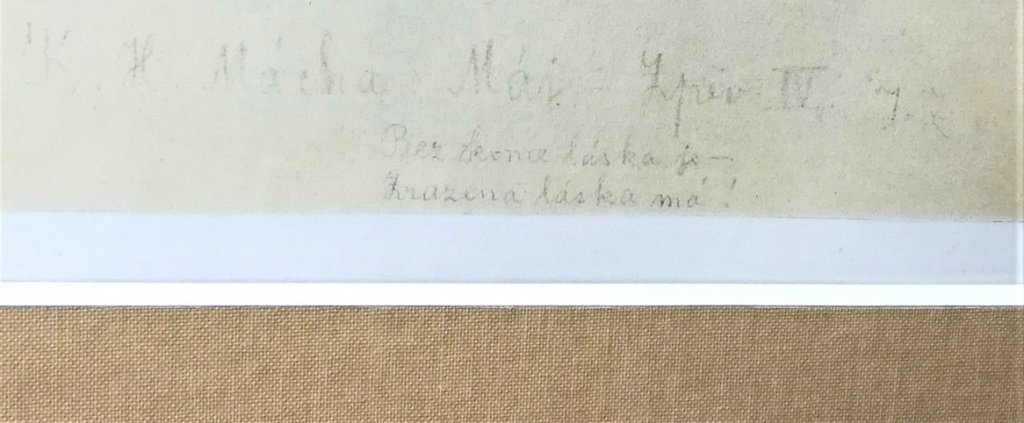 K. H. Mácha: Máj. Zpěv IV.
Bez konce láska je —
Zrazená láska má!